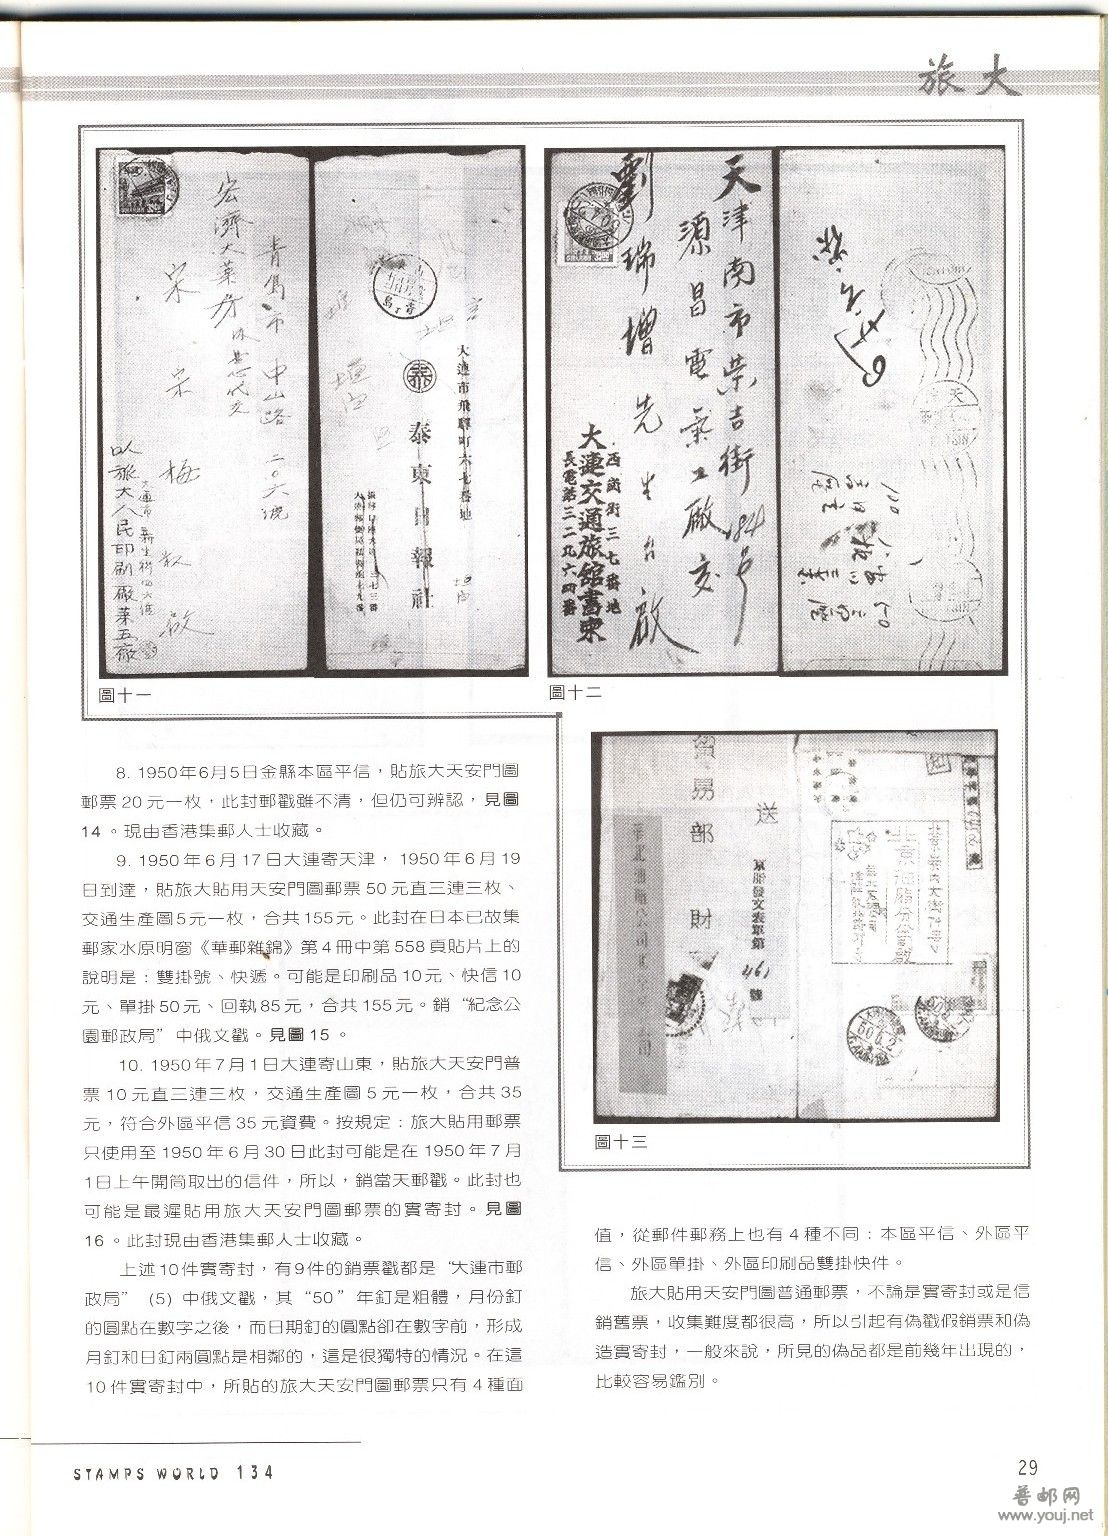 旅大
青島市中山路二〇六號
宏濟大藥房
宋宗梅
啟
以旅大人民印刷廠第五廠
青島
泰
大連市飛驒町六七番地
泰東日報社
天津南市榮吉街184号
源昌電業工廠交
劉瑞增先生台啟
西崗街三七番地
大連交通旅館書柬
長電話三二九六四番
天
TIENTSIN
圖十一
圖十二
貿易部
財
送
京脂發文表單第
461
號
圖十三
8. 1950年6月5日金縣本區平信，貼旅大天安門圖
郵票20元一枚，此封郵戳雖不清，但仍可辨認，見圖
14。現由香港集郵人士收藏。
9. 1950年6月17日大連寄天津，1950年6月19
日到達，貼旅大貼用天安門圖郵票50元直三連三枚、
交通生產圖5元一枚，合共155元。此封在日本已故集
郵家水原明窗《華郵雜錦》第4冊中第558頁貼片上的
說明是：雙掛號、快遞。可能是印刷品10元、快信10
元、單掛50元、回執85元，合共155元。銷“紀念公
園郵政局”中俄文戳。見圖15。
10. 1950年7月1日大連寄山東，貼旅大天安門普
票10元直三連三枚，交通生產圖5元一枚，合共35
元，符合外區平信35元資費。按規定：旅大貼用郵票
只使用至1950年6月30日此封可能是在1950年7月
1日上午開筒取出的信件，所以，銷當天郵戳。此封也
可能是最遲貼用旅大天安門圖郵票的實寄封。見圖
16。此封現由香港集郵人士收藏。
上述10件實寄封，有9件的銷票戳都是“大連市郵
政局” (5) 中俄文戳，其“50”年釘是粗體，月份釘
的圓點在數字之後，而日期釘的圓點卻在數字前，形成
月釘和日釘兩圓點是相鄰的，這是很獨特的情況。在這
10件實寄封中，所貼的旅大天安門圖郵票只有4種面
值，從郵件郵務上也有4種不同：本區平信、外區平
信、外區單掛、外區印刷品雙掛快件。
旅大貼用天安門圖普通郵票，不論是實寄封或是信
銷舊票，收集難度都很高，所以引起有偽戳假銷票和偽
造實寄封，一般來說，所見的偽品都是前幾年出現的，
比較容易鑑別。
STAMPS WORLD 134
29
普邮网
www.youj.net